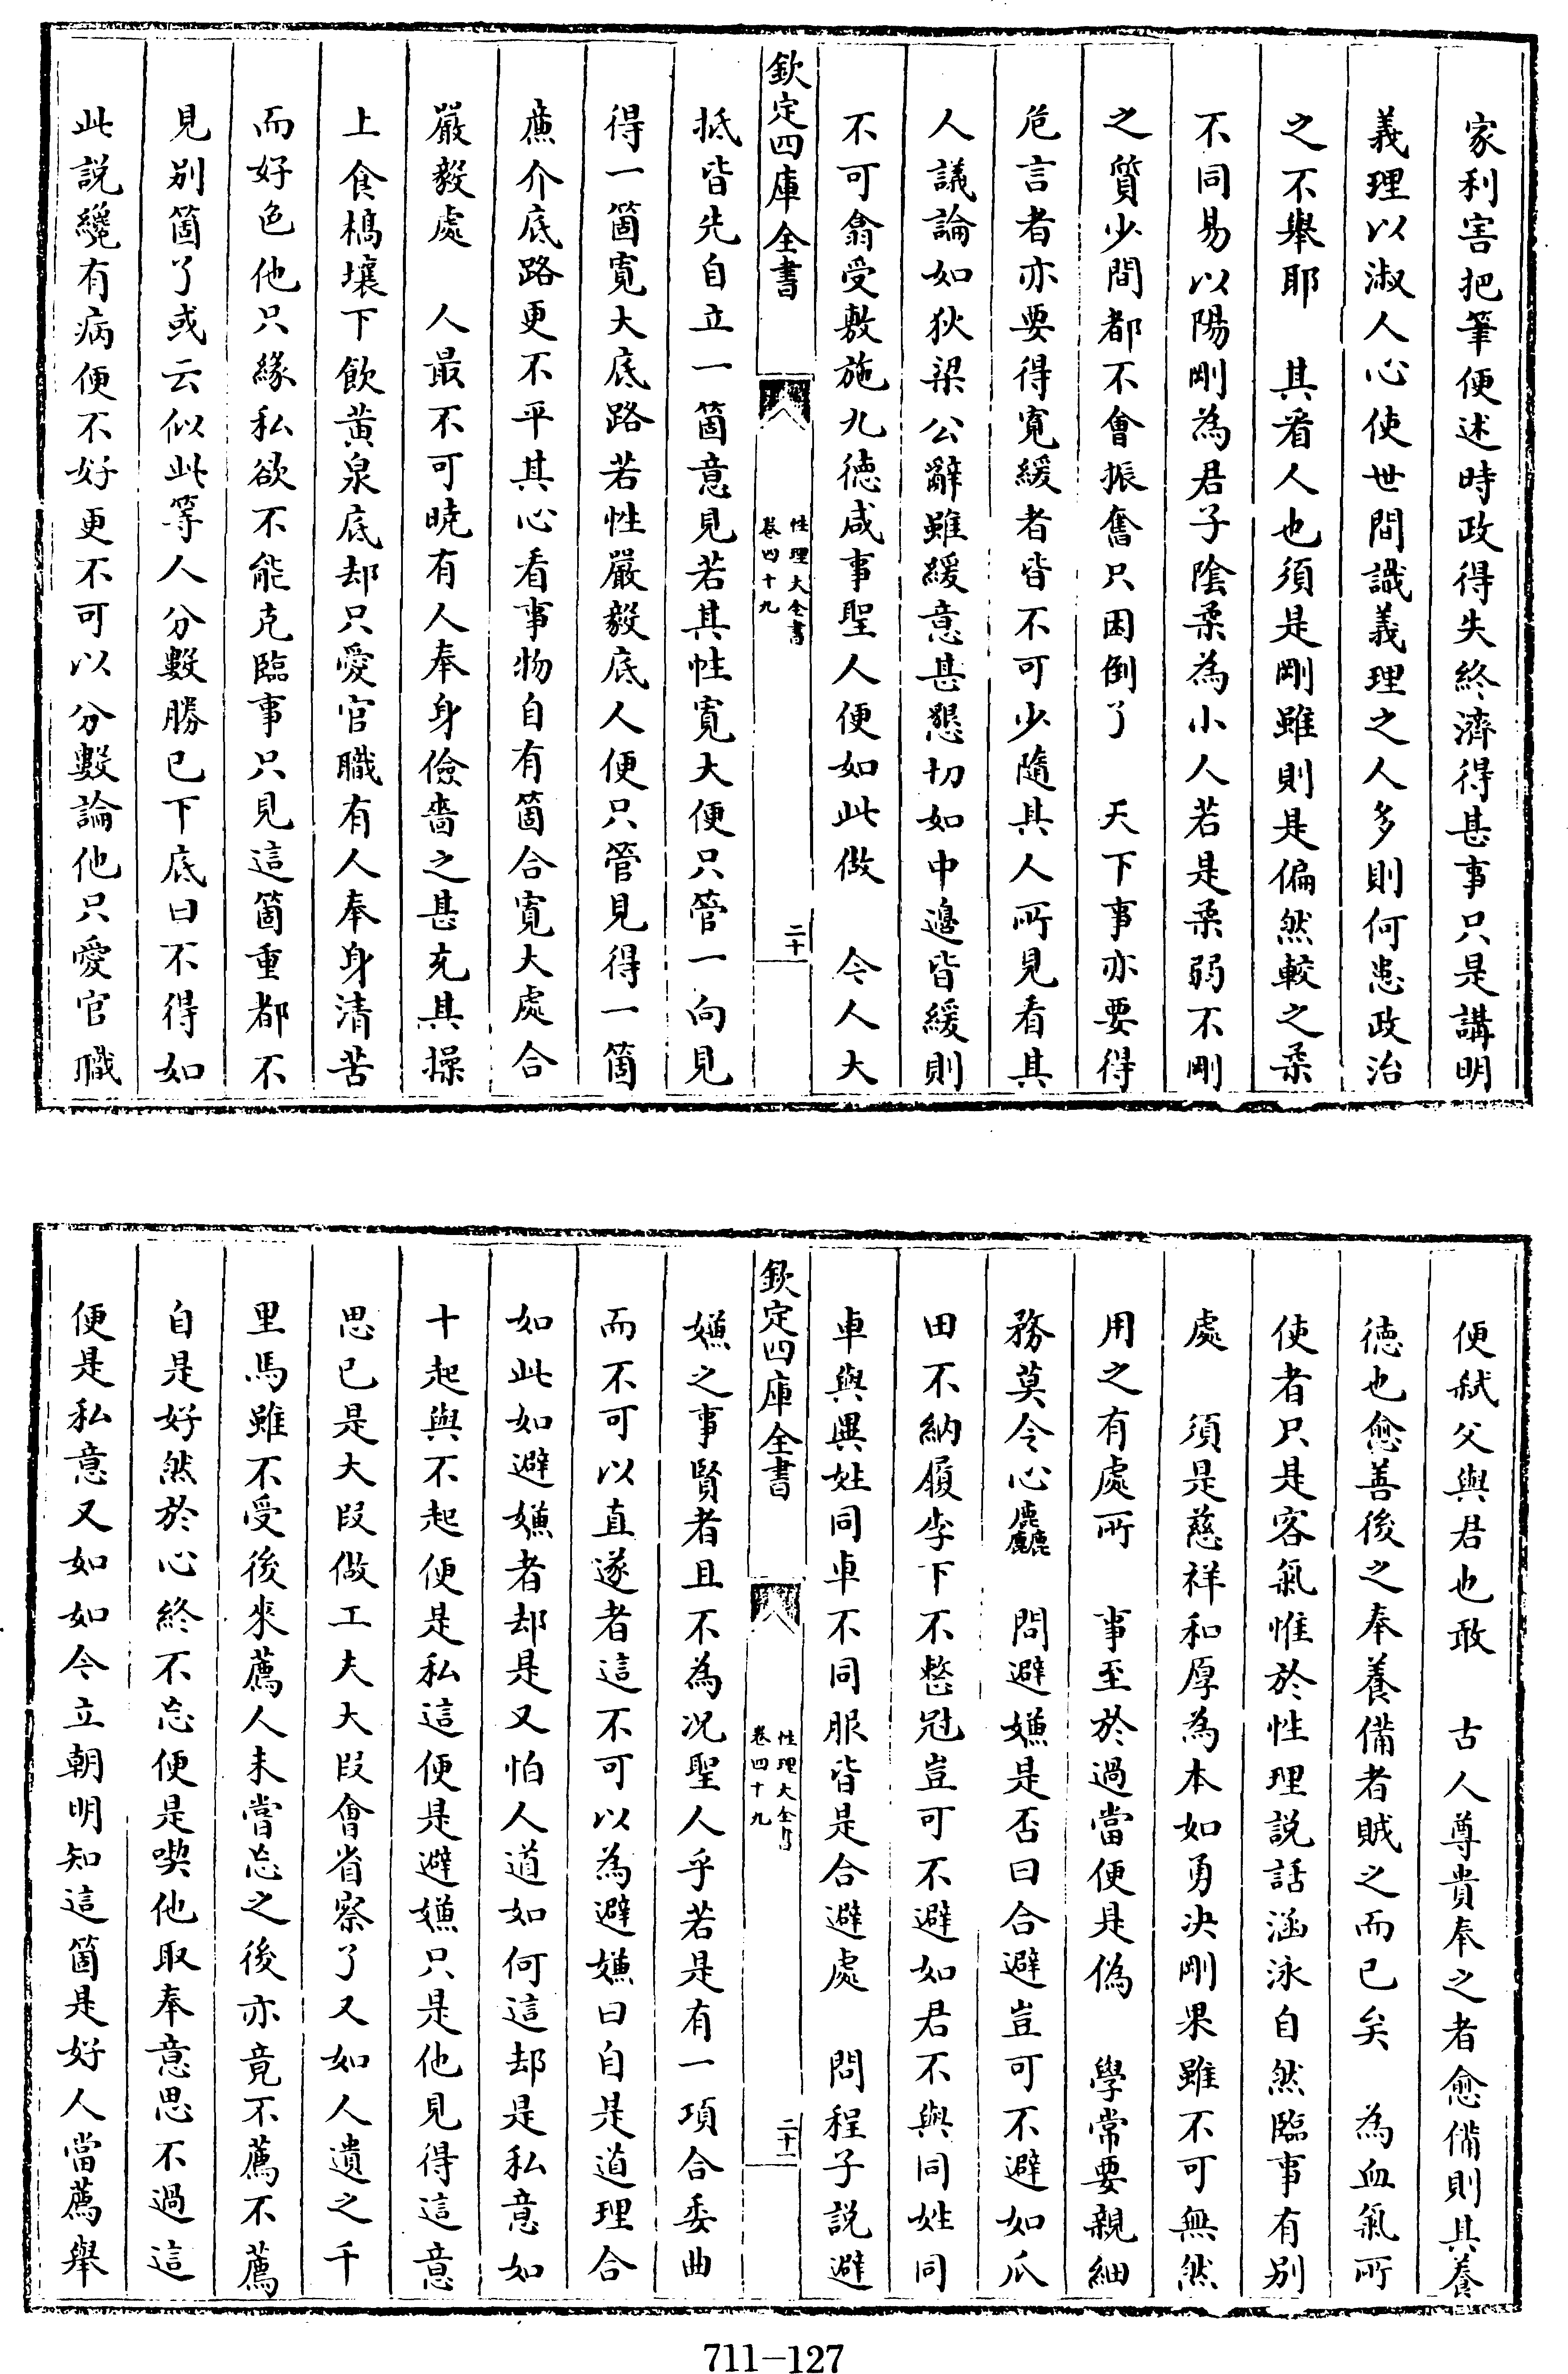 家利害把筆便述時政得失終濟得甚事只是講明
義理以淑人心使世間識義理之人多則何患政治
之不舉耶　其看人也須是剛雖則是偏然較之柔
不同易以陽剛為君子陰柔為小人若是柔弱不剛
之質少間都不會振奮只困倒了　天下事亦要得
危言者亦要得寬緩者皆不可少隨其人所見看其
人議論如狄梁公辭雖緩意甚懇切如中邊皆緩則
不可翕受敷施九德咸事聖人便如此做　今人大
欽定四庫全書
性理大全書
卷四十九
二十
抵皆先自立一箇意見若其性寬大便只管一向見
得一箇寬大底路若性嚴毅底人便只管見得一箇
廉介底路更不平其心看事物自有箇合寬大處合
嚴毅處　人最不可曉有人奉身儉嗇之甚充其操
上食槁壤下飲黄泉底却只愛官職有人奉身清苦
而好色他只緣私欲不能克臨事只見這箇重都不
見別箇了或云似此等人分數勝已下底曰不得如
此說纔有病便不好更不可以分數論他只愛官職
便弒父與君也敢　古人尊貴奉之者愈備則其養
德也愈善後之奉養備者賊之而已矣　為血氣所
使者只是客氣惟於性理說話涵泳自然臨事有別
處　須是慈祥和厚為本如勇决剛果雖不可無然
用之有處所　事至於過當便是偽　學常要親細
務莫令心麤　問避嫌是否曰合避豈可不避如瓜
田不納履李下不整冠豈可不避如君不與同姓同
車與異姓同車不同服皆是合避處　問程子說避
欽定四庫全書
性理大全書
卷四十九
二十一
嫌之事賢者且不為况聖人乎若是有一項合委曲
而不可以直遂者這不可以為避嫌曰自是道理合
如此如避嫌者却是又怕人道如何這却是私意如
十起與不起便是私這便是避嫌只是他見得這意
思已是大段做工夫大段會省察了又如人遺之千
里馬雖不受後來薦人未嘗忘之後亦竟不薦不薦
自是好然於心終不忘便是喫他取奉意思不過這
便是私意又如如今立朝明知這箇是好人當薦舉
711—127